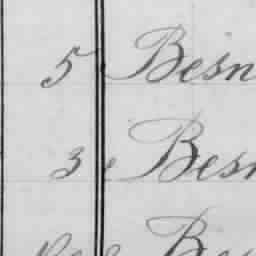 5 Besn
3 Besn